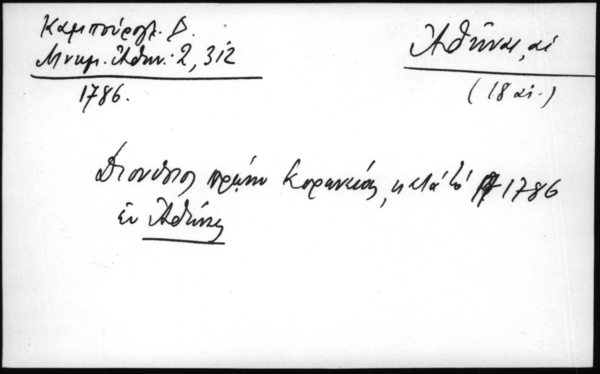 Καμπούρογλ. Δ.
Μνημ. Ἀθην. 2, 312
1786.
Ἀθῆναι, αἱ
(18 αἰ.)
Διονύσιος πρώην Κορωνείας, κατὰ τὸ 1786
ἐν Ἀθήναις